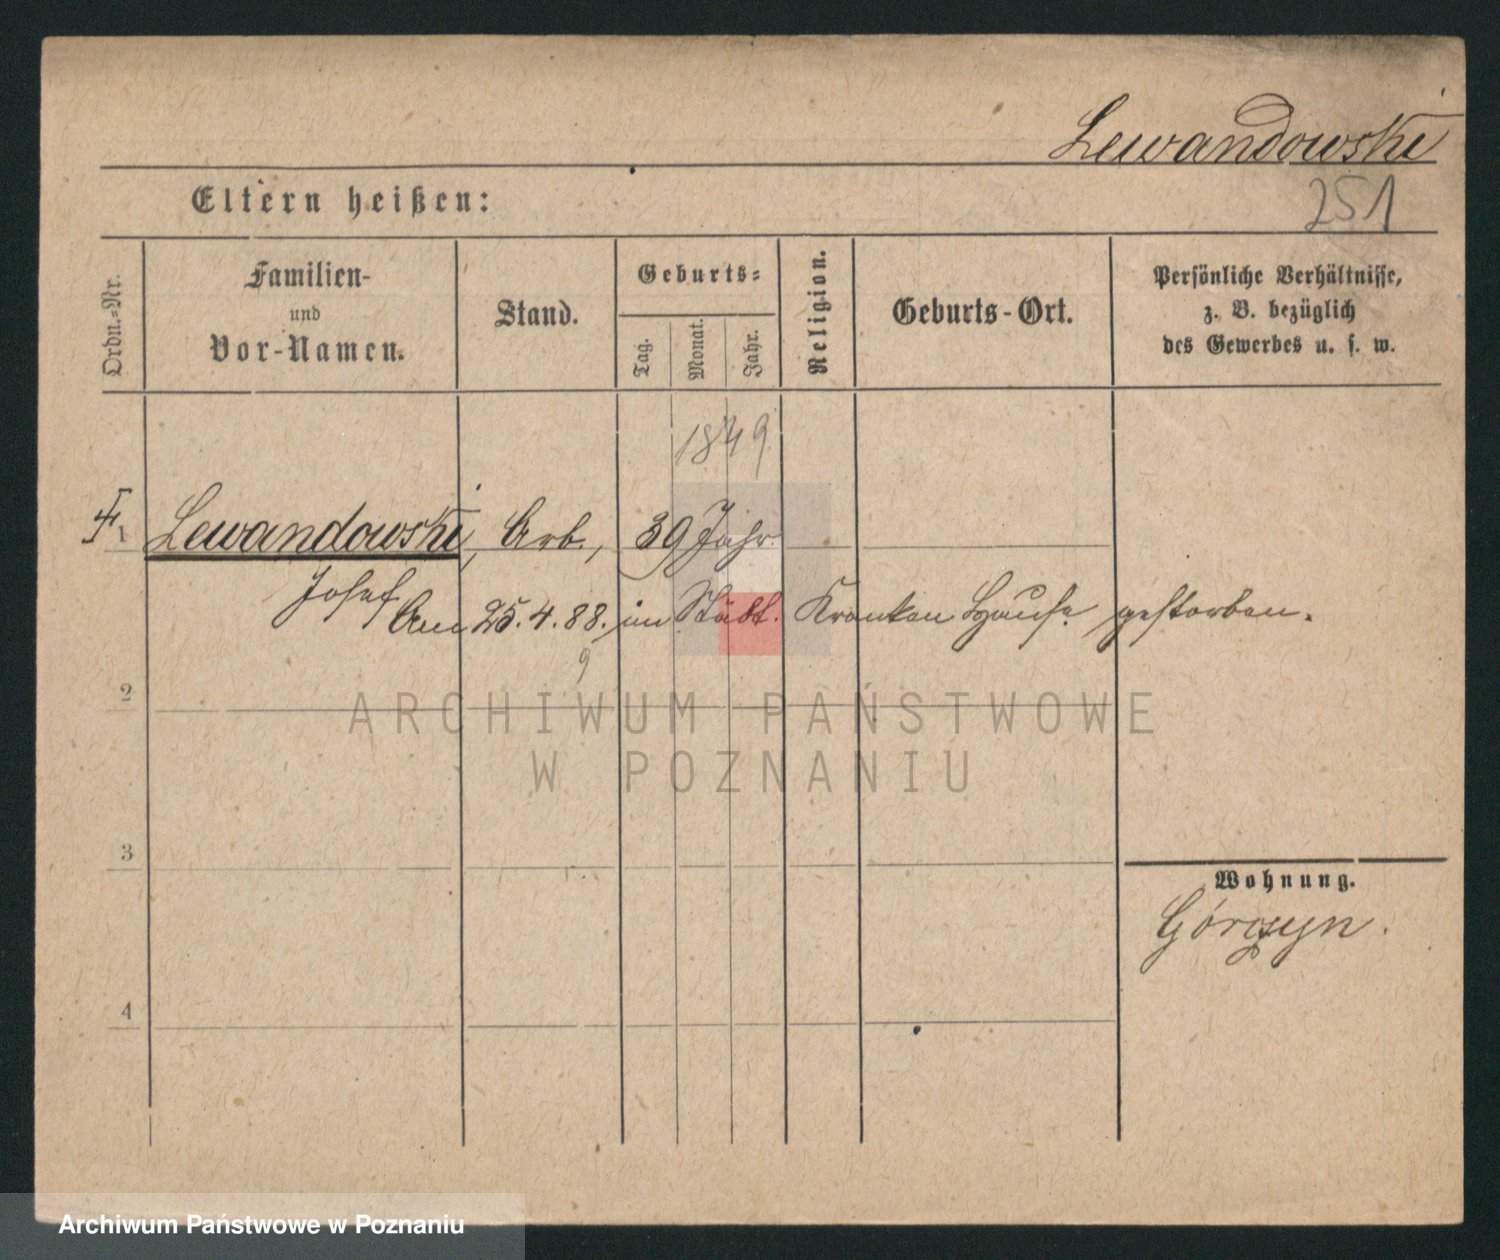 Lewandowski
Eltern heißen:
251
Ordn.-Nr.
Familien-
und
Vor-Namen.
Stand.
Geburts-
Tag.
Monat.
Jahr.
Religion.
Geburts-Ort.
Persönliche Verhältnisse,
z. B. bezüglich
des Gewerbes u. s. w.
1849
1
Lewandowski, Arb., 39 Jahr
Josef
Am 25.4.88. im Städt. Kranken Hause gestorben.
9
2
ARCHIWUM PAŃSTWOWE
W POZNANIU
3
Wohnung.
Górczyn.
4
Archiwum Państwowe w Poznaniu